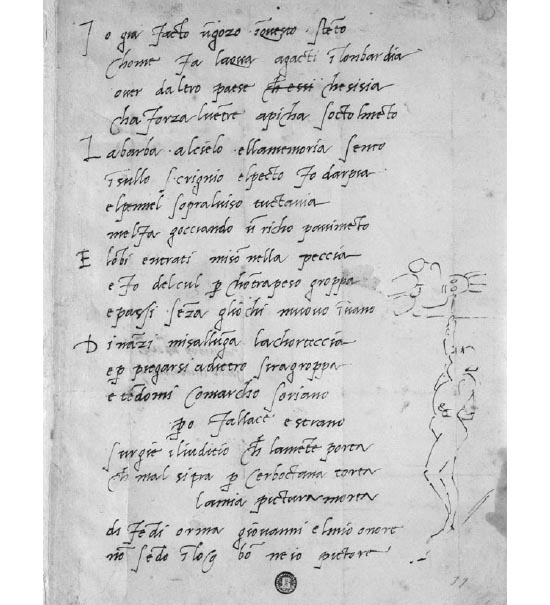 I o gia facto ũgozo ĩquesto stẽto
chome fa laqua agacti ĩlonbardia
over daltro paese ch essi chesisia
cha forza luẽtre apicha socto lmẽto
L abarba alcielo ellamemoria sento
ĩsullo scrignio elpecto fo darpia
elpennel sopraluiso tuctauia
melfa gocciando ũ richo pauimẽto
E lõbi entrati misõ nella peccia
e fo delcul p chõtrapeso groppa
epassi sẽza gliochi muouo ĩuano
D inãzi misallũga lachorteccia
ep piegarsi adietro siragroppa
e tẽdomi comarcho soriano
po fallace e strano
surgie iliudicio ch lamẽte porta
ch mal sitra p cerboctana torta
lamia pictura morta
di fedi orma giouanni elmio onore
nõ sẽdo ĩlog bõ ne io pictore